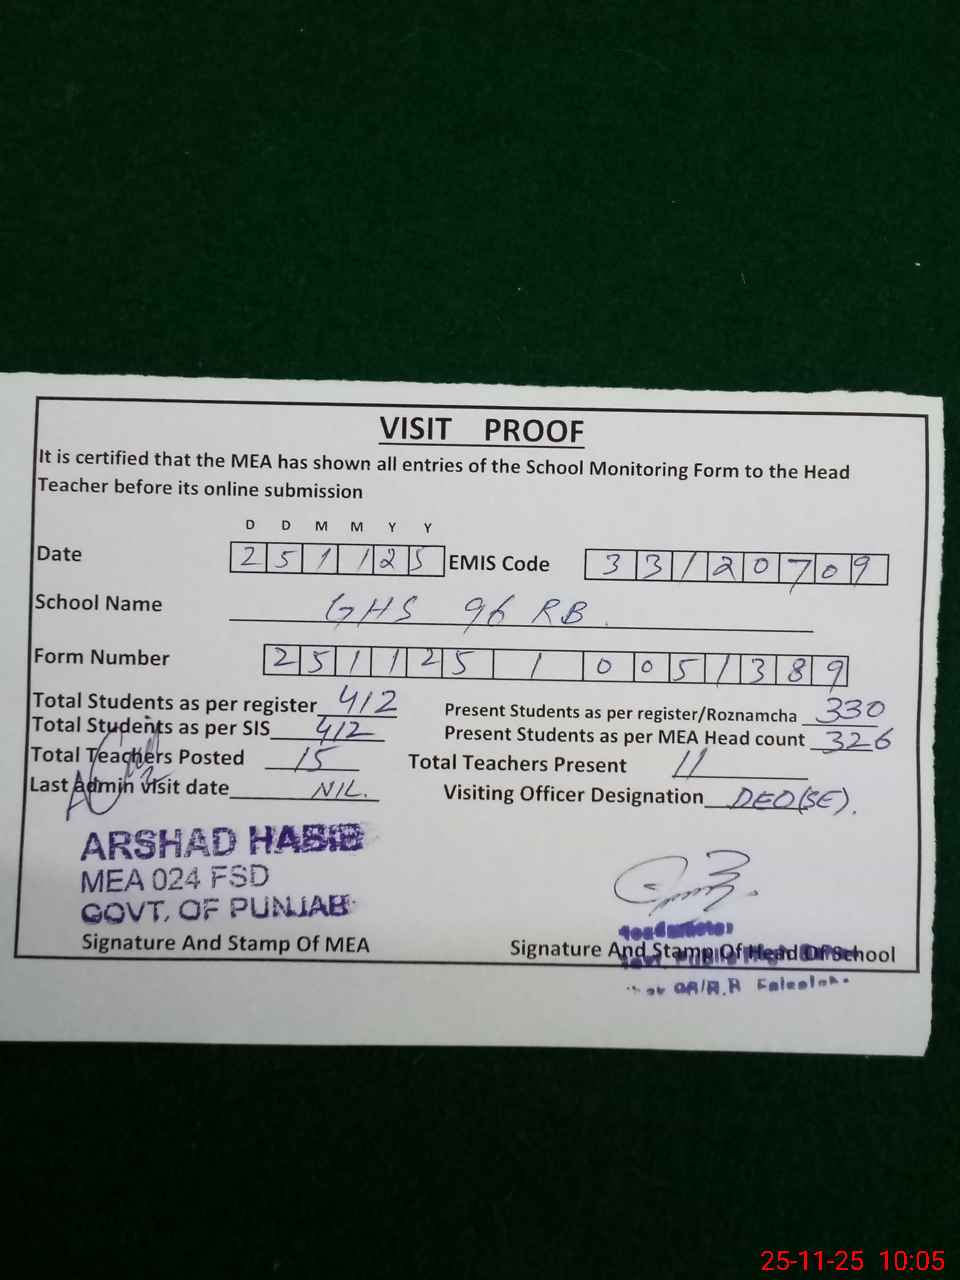 VISIT PROOF
It is certified that the MEA has shown all entries of the School Monitoring Form to the Head
Teacher before its online submission
D D M M Y Y
Date 2 5 1 1 2 5 EMIS Code 3 3 1 2 0 7 0 9
School Name GHS 96 RB
Form Number 2 5 1 1 2 5 1 0 0 5 1 3 8 9
Total Students as per register 412 Present Students as per register/Roznamcha 330
Total Students as per SIS 412 Present Students as per MEA Head count 326
Total Teachers Posted 15 Total Teachers Present 11
Last admin visit date NIL. Visiting Officer Designation DEO(SE).
ARSHAD HABIB
MEA 024 FSD
GOVT. OF PUNJAB
Headmaster
Signature And Stamp Of MEA Signature And Stamp Of Head Of School
25-11-25 10:05